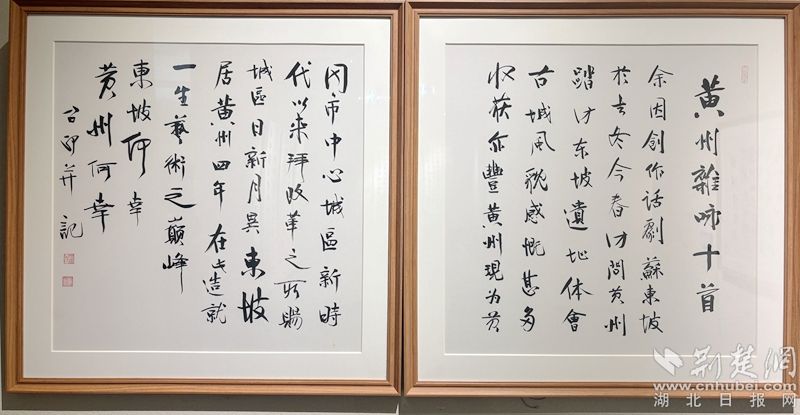 黃州雜咏十首
余因创作话剧蘇東坡
於去冬今春访問黄州
踏访东坡遺地体會
古城風貌感慨甚多
收获亦豐黄州現为黄
冈市中心城區新時
代以来拜改革之所賜
城區日新月異東坡
居黄州四年在此造就
一生藝術之巔峰
東坡何幸
黄州何幸
并記
荆楚網
www.cnhubei.com
湖北日报网